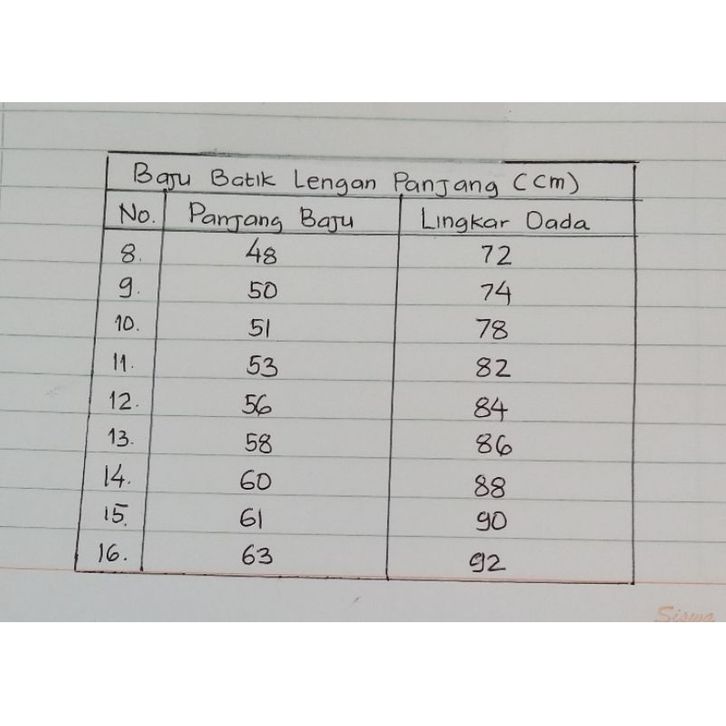 Baju Batik Lengan Panjang (Cm)
No. Panjang Baju Lingkar Dada
8. 48 72
9. 50 74
10. 51 78
11. 53 82
12. 56 84
13. 58 86
14. 60 88
15. 61 90
16. 63 92